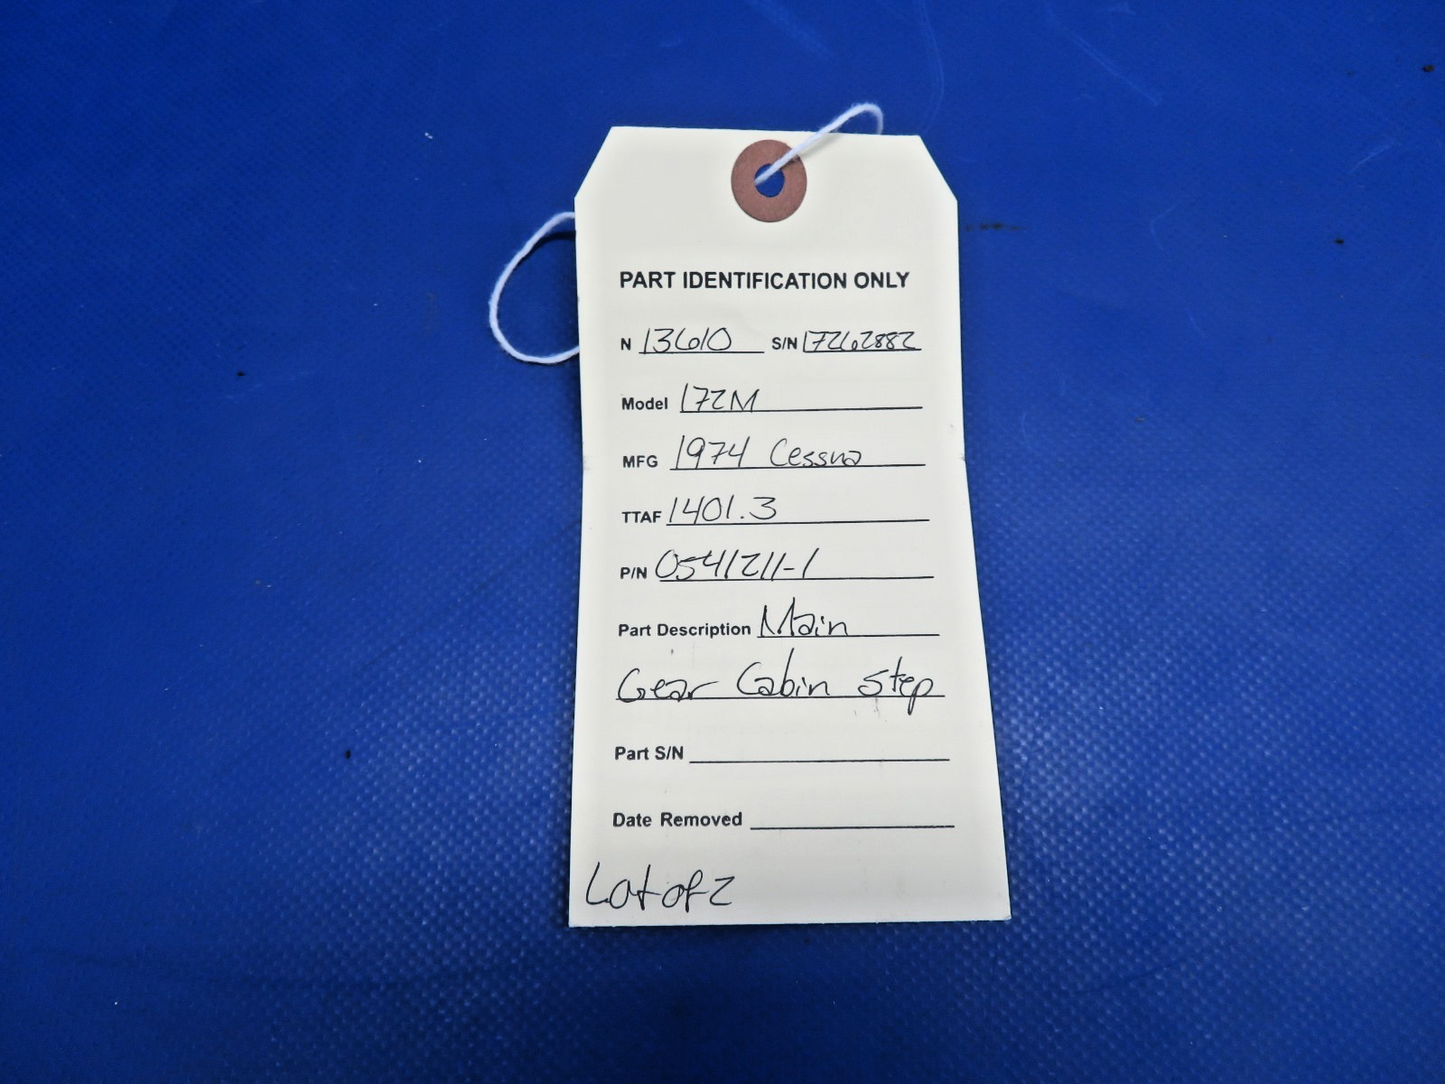 PART IDENTIFICATION ONLY
N 13610 S/N 17262882
Model 172M
MFG 1974 Cessna
TTAF 1401.3
P/N 0541211-1
Part Description Main
Gear Cabin Step
Part S/N
Date Removed
Lot of 2